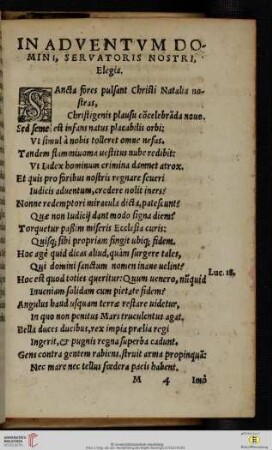 IN ADVENTVM DO-
MINI, SERVATORIS NOSTRI,
Elegia.
SAncta fores pulsant Christi Natalia no-
stras,
Christigenis plausu cõcelebrãda nouo.
Sed semel est infans natus placabilis orbi;
Vt simul à nobis tolleret omne nefas.
Tandem flammiuoma uestitus nube redibit:
Vt Iudex hominum crimina damnet atrox.
Et quis pro foribus nostris regnare seueri
Iudicis aduentum, credere nolit iners?
Nonne redemptori miracula dicta, patescunt?
Quæ non Iudicij dant modo signa diem?
Torquetur passim miseris Ecclesia curis:
Quisq; sibi propriam fingit ubiq; fidem.
Hoc age quid dicas aliud, quàm surgere tales,
Qui domini sanctum nomen inane uelint?
Hoc est quod toties queritur: Quum uenero, nũquid
Luc. 18.
Inueniam solidam cum pietate fidem?
Angulus haud usquam terræ restare uidetur,
In quo non penitus Mars truculentus agat.
Bella duces ducibus, rex impia prælia regi
Ingerit, & pugnis regna superba cadunt.
Gens contra gentem rabiens, struit arma propinquã:
Nec mare nec tellus fœdera pacis habent.
M 4 Imò